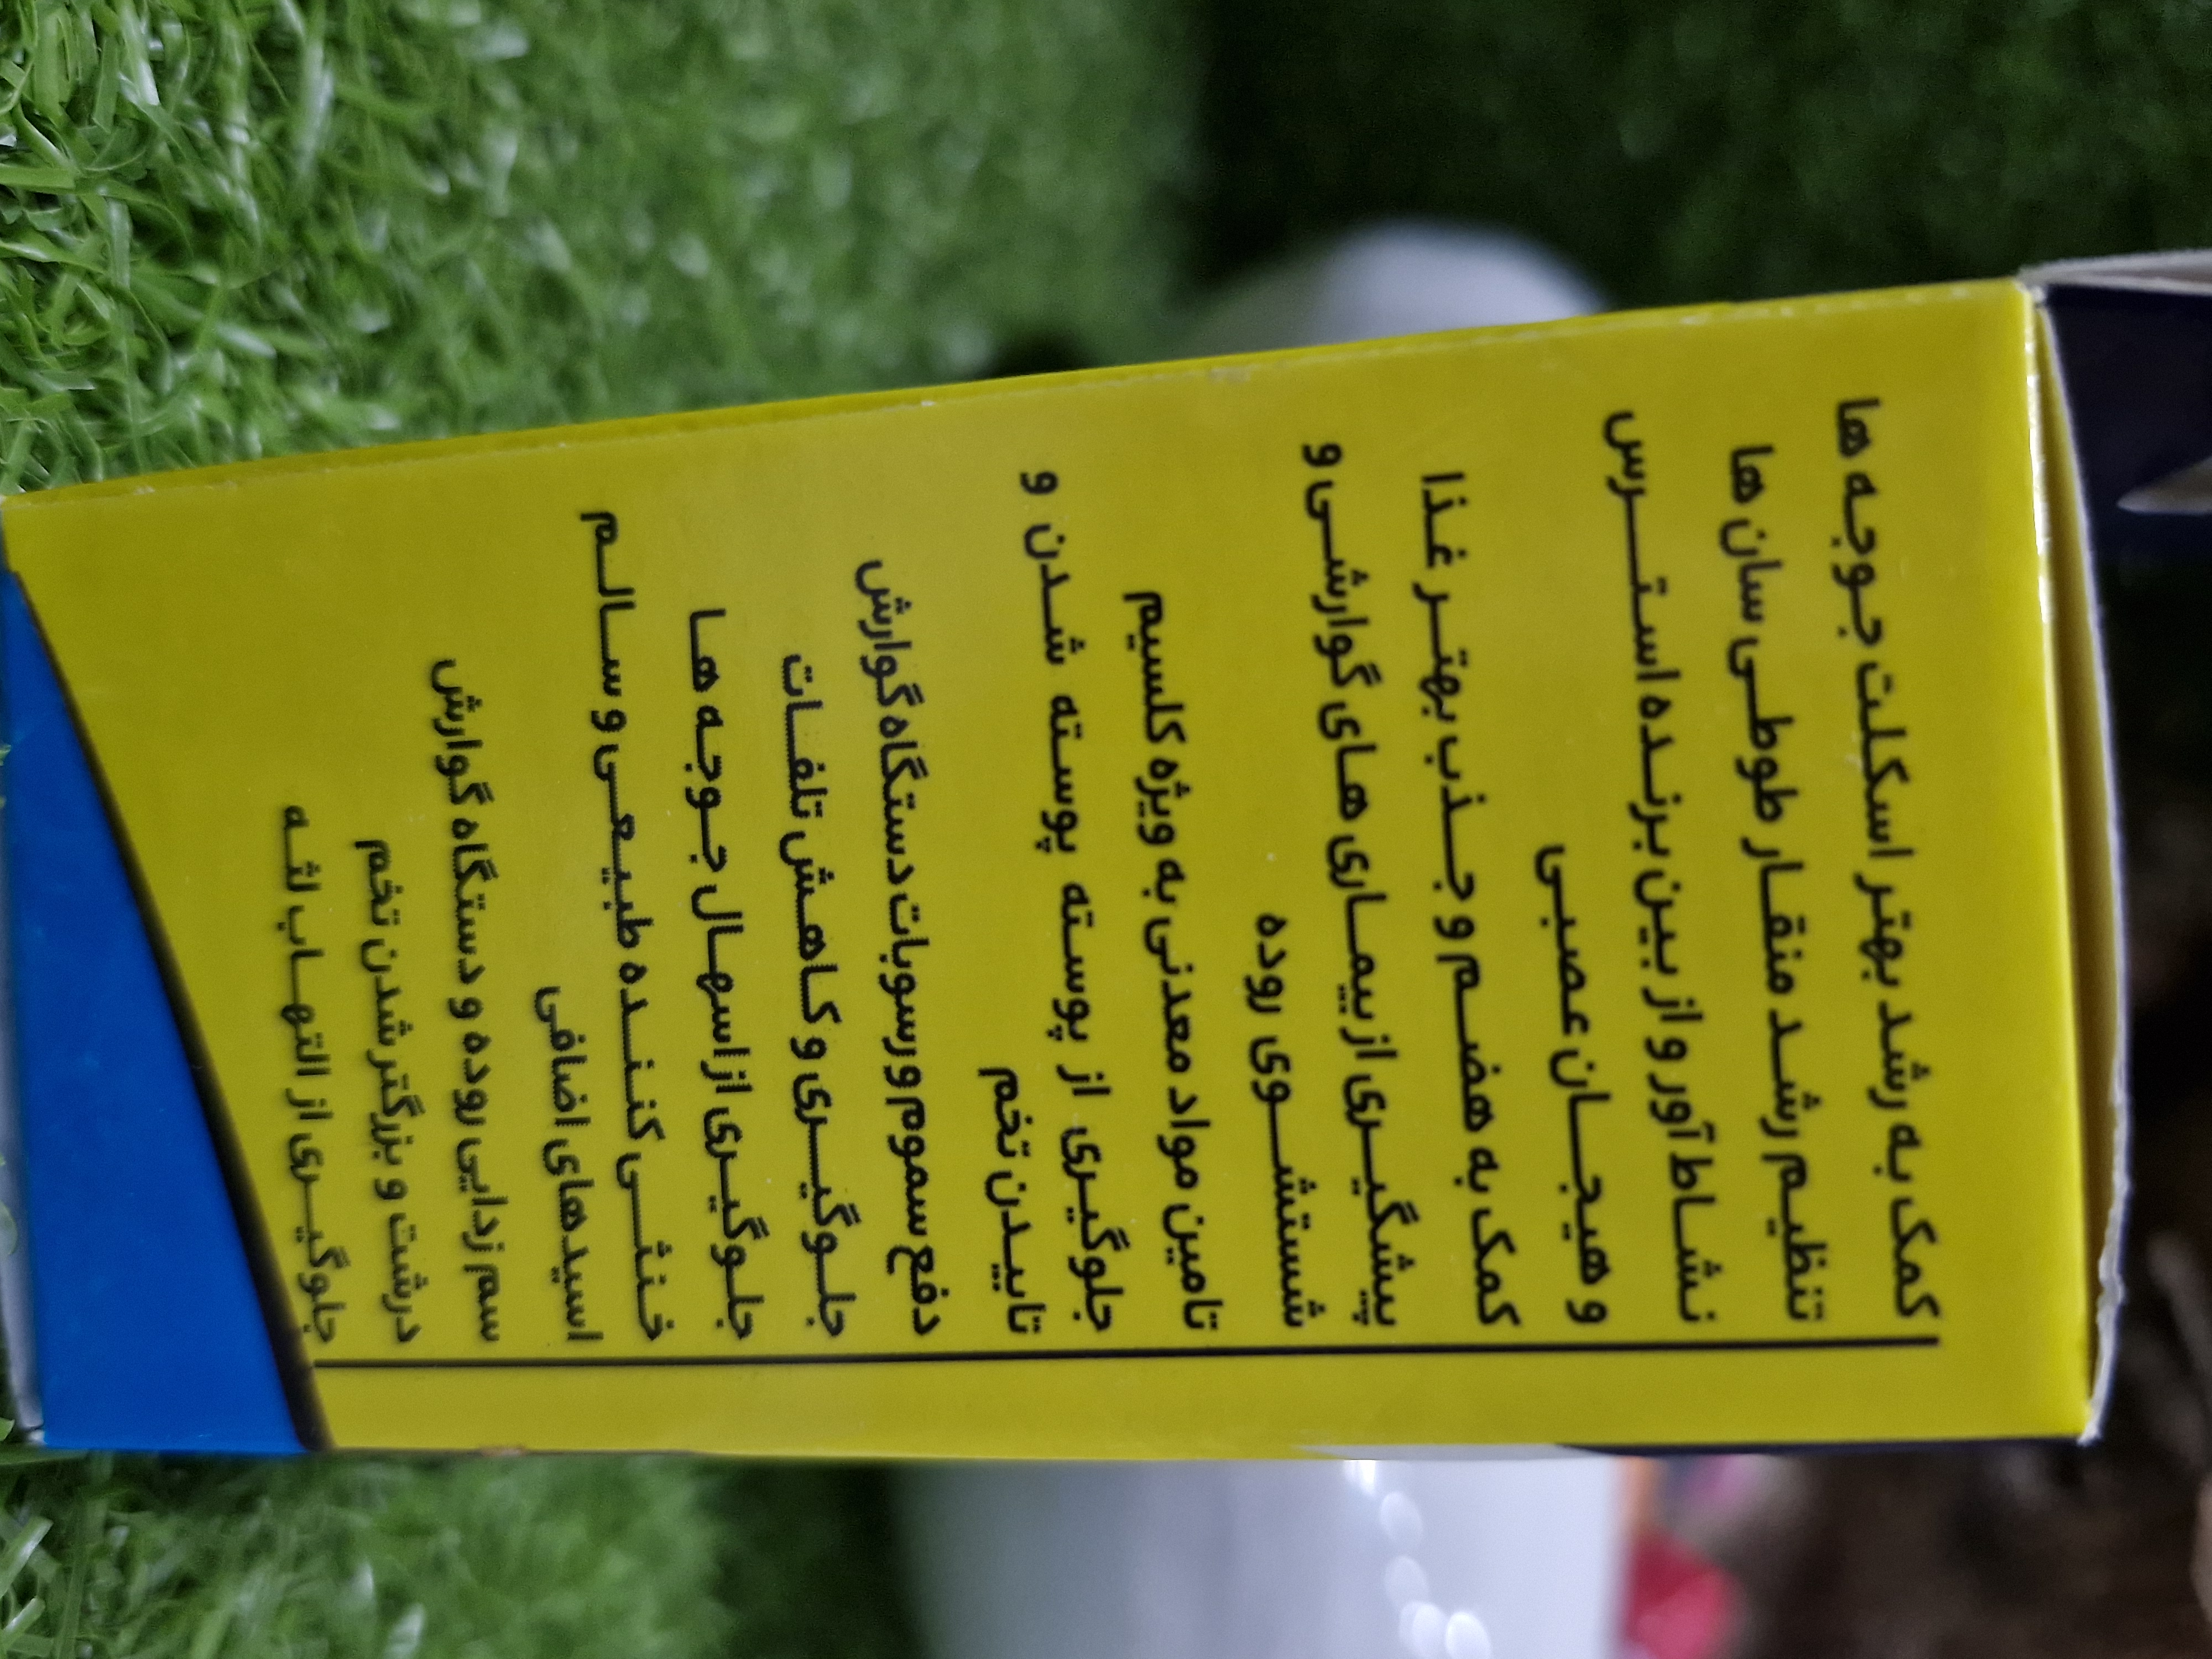 کمک به رشد بهتر اسکلت جوجه ها
تنظیم رشد منقار طوطی سان ها
نشاط آور و از بین برنده استرس
و هیجان عصبی
کمک به هضم و جذب بهتر غذا
پیشگیری از بیماری های گوارشی و
شستشوی روده
تامین مواد معدنی به ویژه کلسیم
جلوگیری از پوسته پوسته شدن و
تابیدن تخم
دفع سموم و رسوبات دستگاه گوارش
جلوگیری و کاهش تلفات
جلوگیری از اسهال جوجه ها
خنثی کننده طبیعی و سالم
اسیدهای اضافی
سم زدایی روده و دستگاه گوارش
درشت و بزرگتر شدن تخم
جلوگیری از التهاب لثه